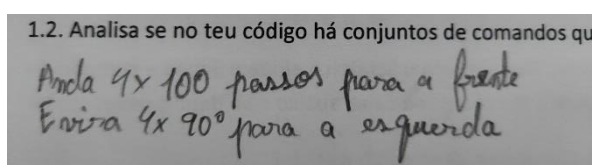 1.2. Analisa se no teu código há conjuntos de comandos qu
Anda 4x 100 passos para a frente
E vira 4x 90° para a esquerda